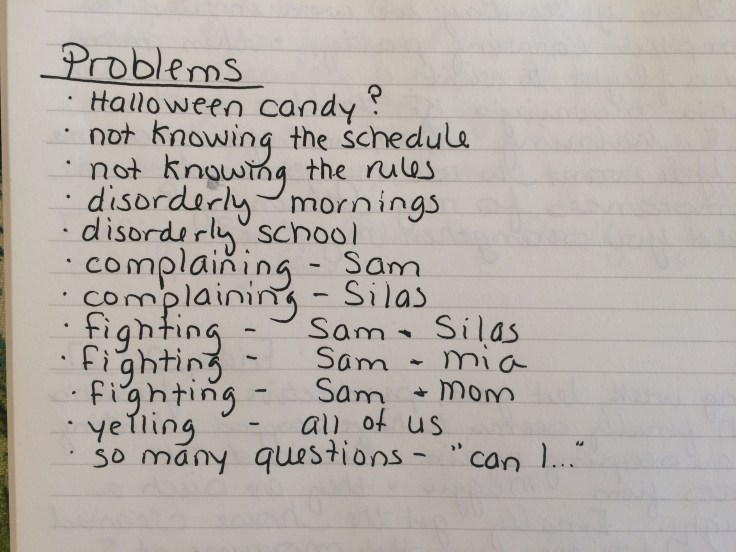 Problems
· Halloween candy?
· not knowing the schedule
· not knowing the rules
· disorderly mornings
· disorderly school
· complaining - Sam
· complaining - Silas
· fighting - Sam + Silas
· fighting - Sam + mia
· fighting - Sam + mom
· yelling - all of us
· so many questions - "can I..."